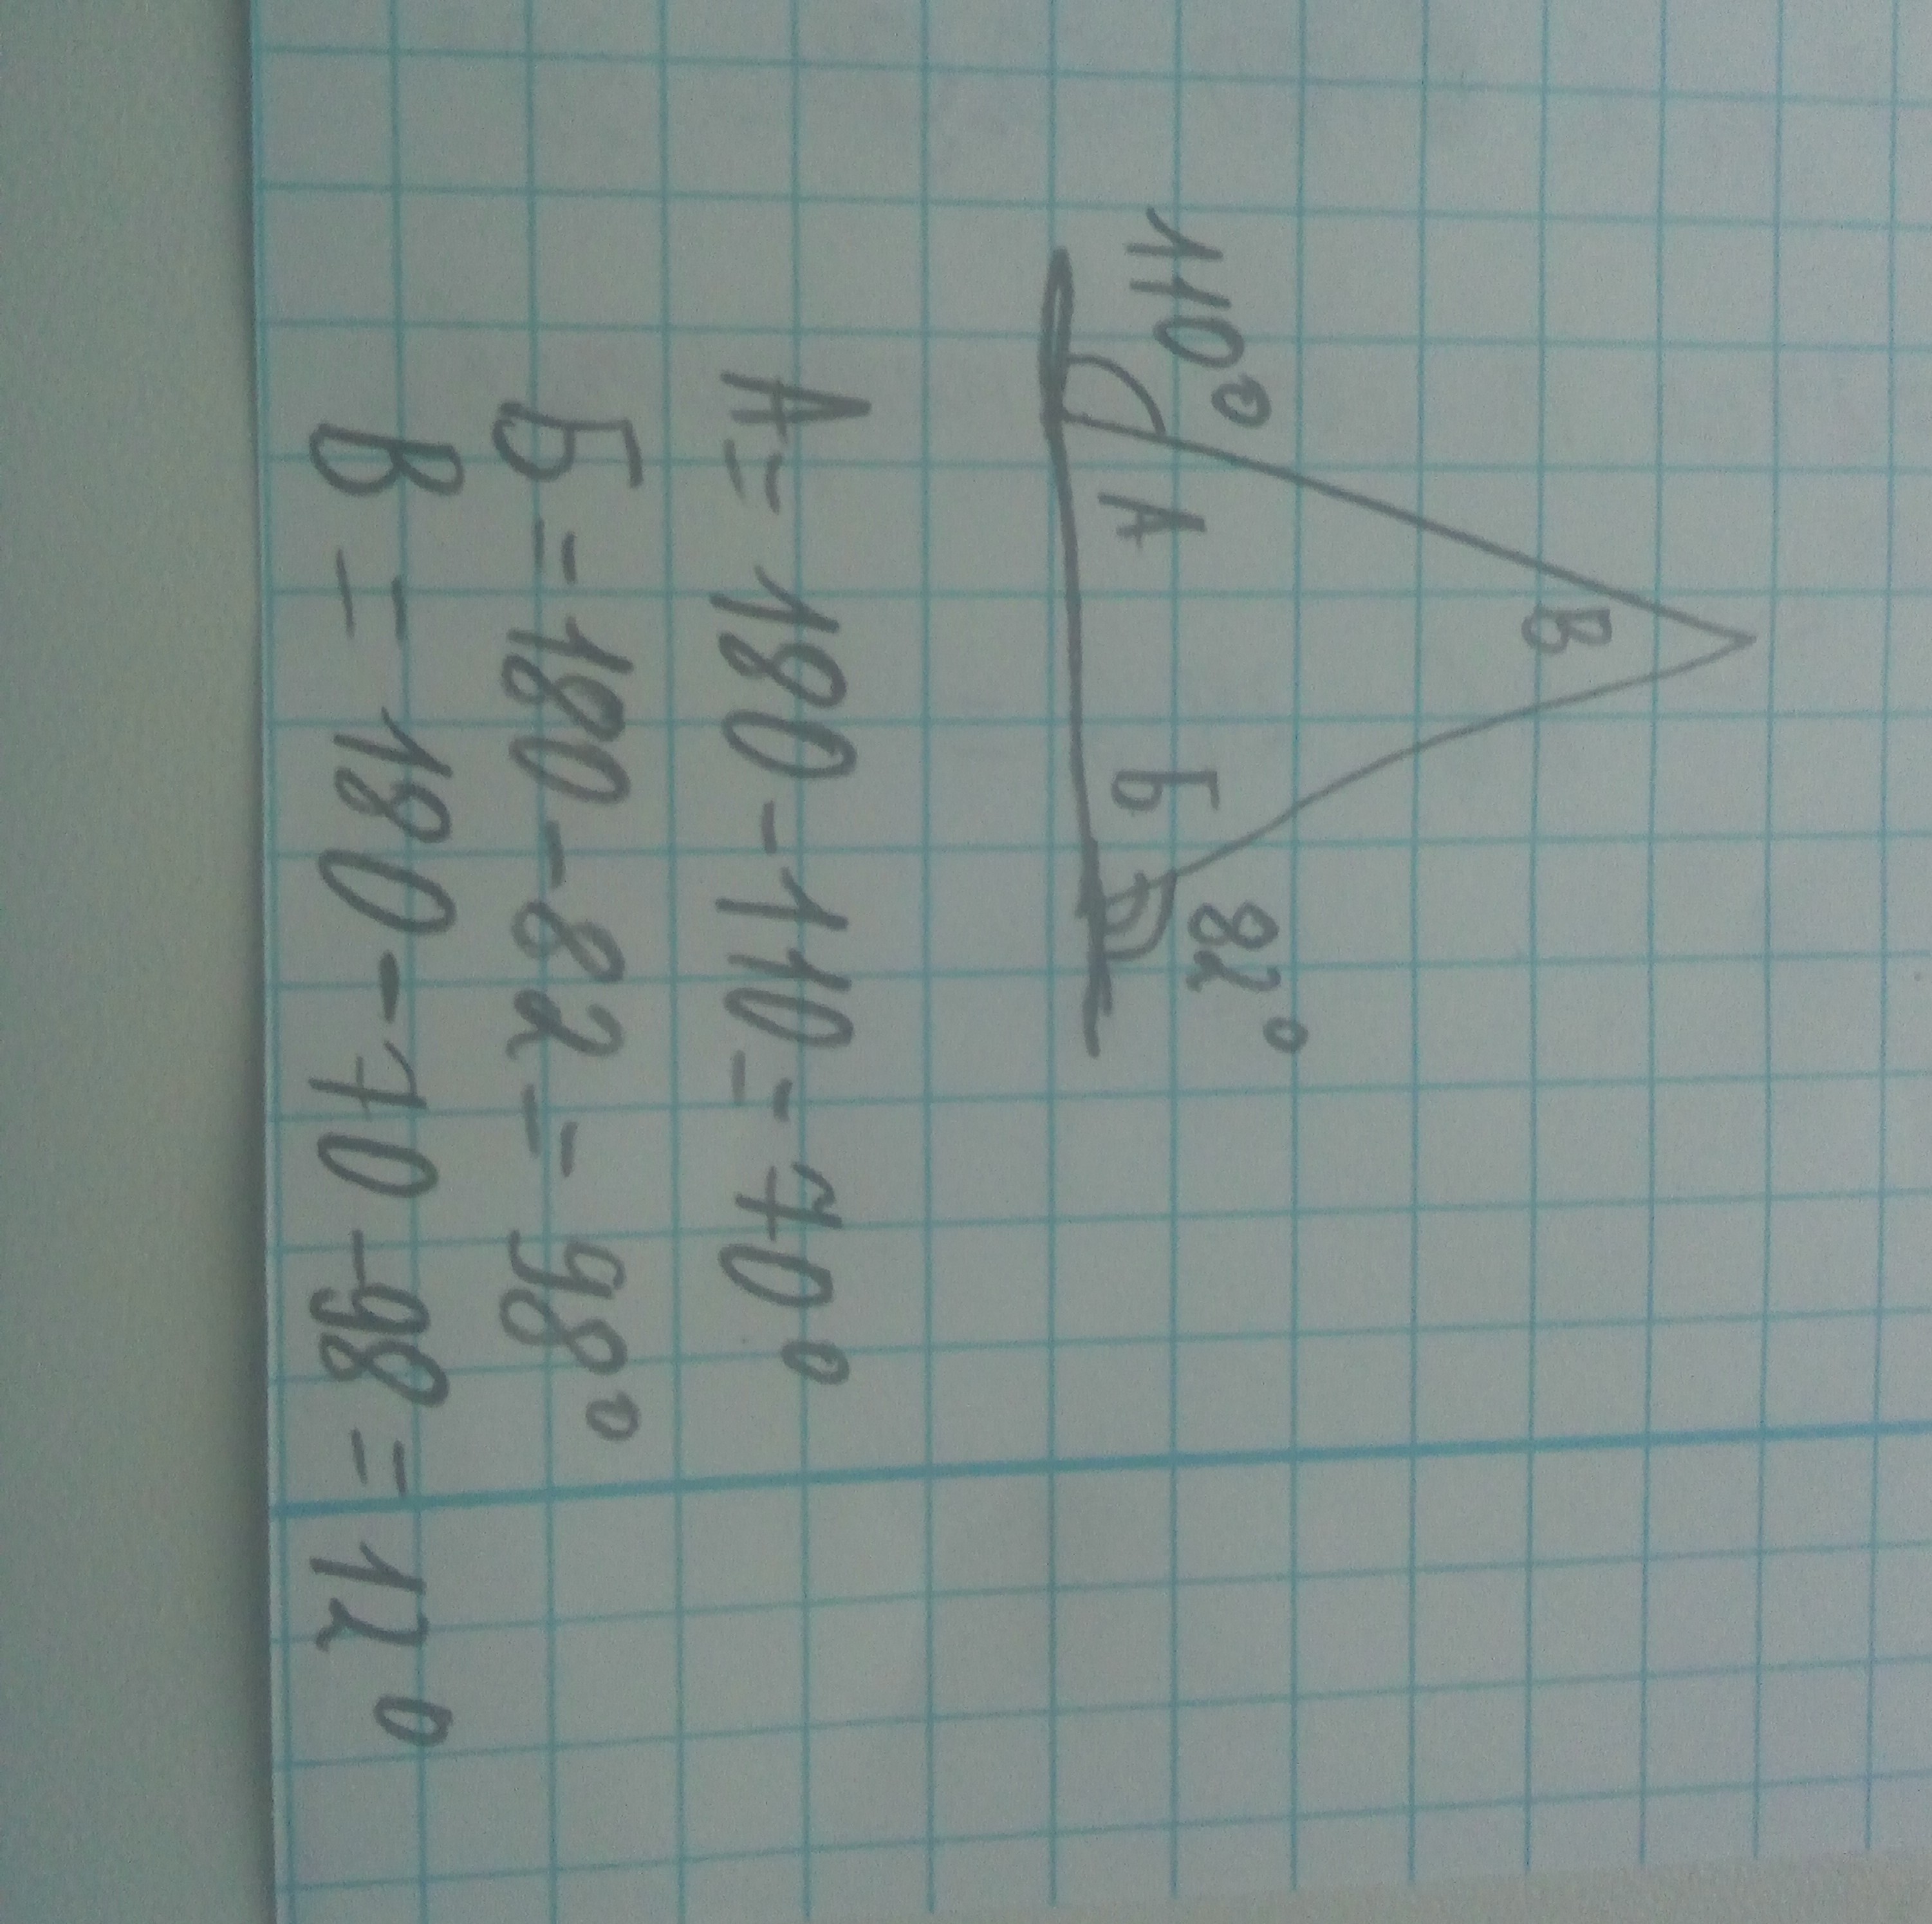 В
110°
А
Б
82°
А = 180 - 110 = 70°
Б = 180 - 82 = 98°
В = 180 - 70 - 98 = 12°